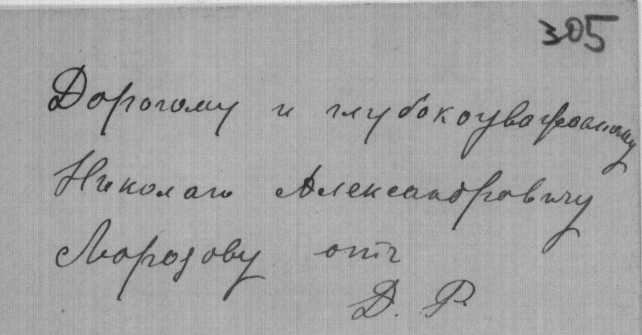 305
Дорогому и глубокоуважаемому
Николаю Александровичу
Морозову отъ
Д. Р.